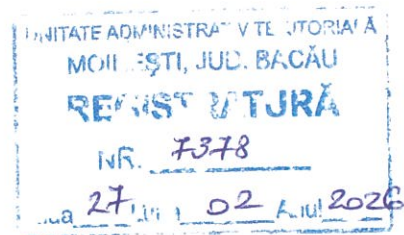 UNITATE ADMINISTRATIV TERITORIALĂ
MOINEȘTI, JUD. BACĂU
REGISTRATURĂ
NR. 7378
Ziua 27 Luna 02 Anul 2026